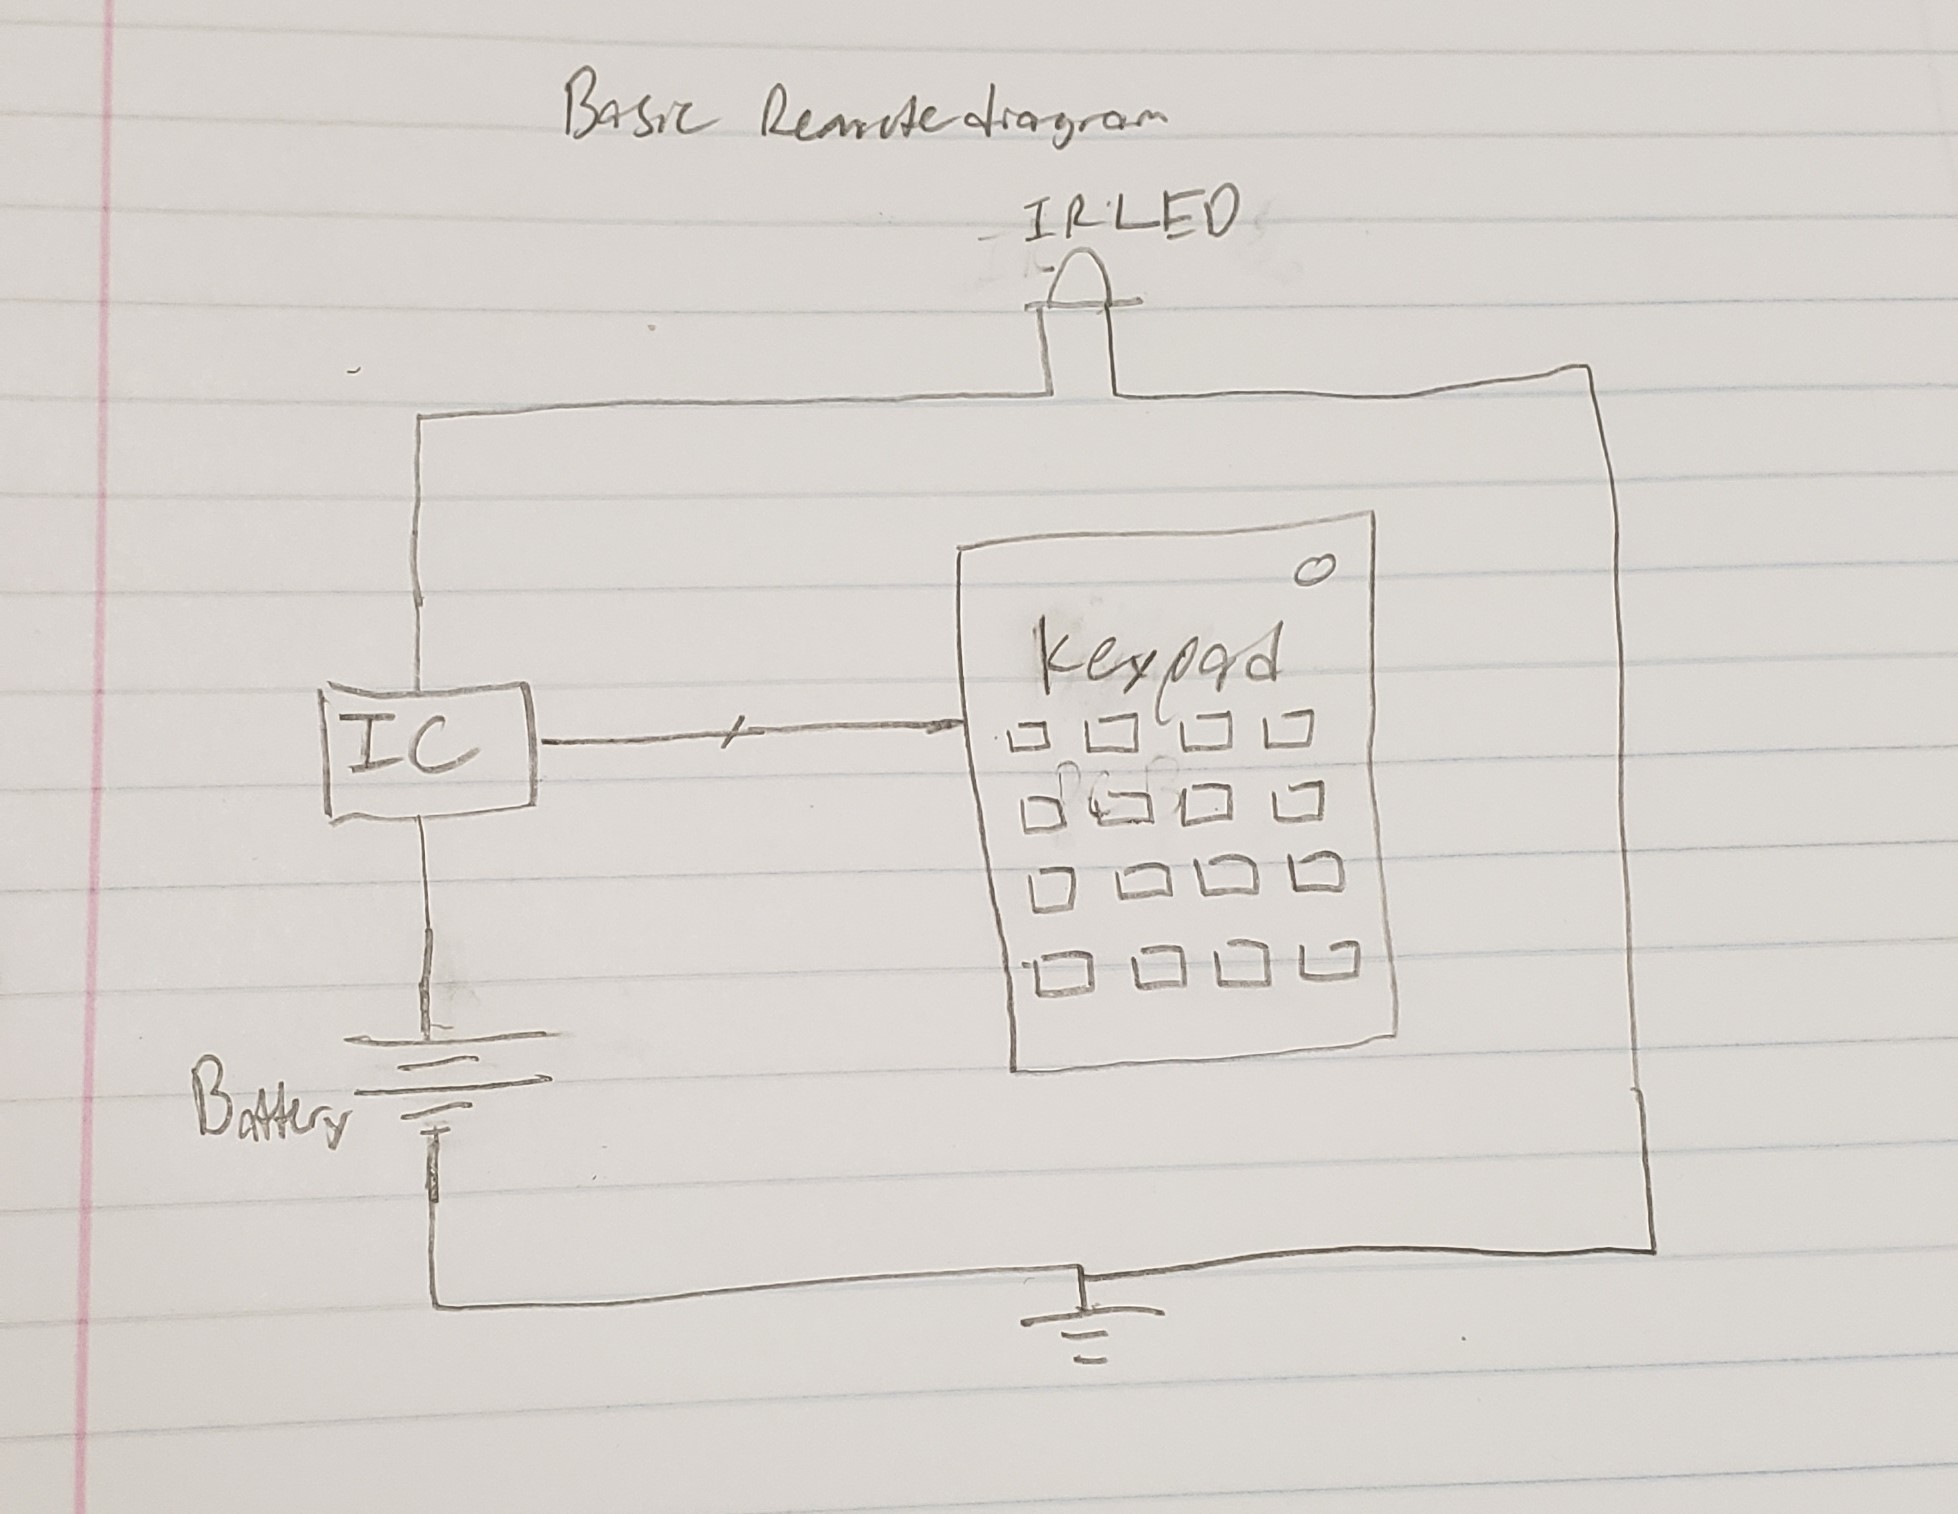 Basic Remote diagram
IR LED
Keypad
IC
PCB
Battery